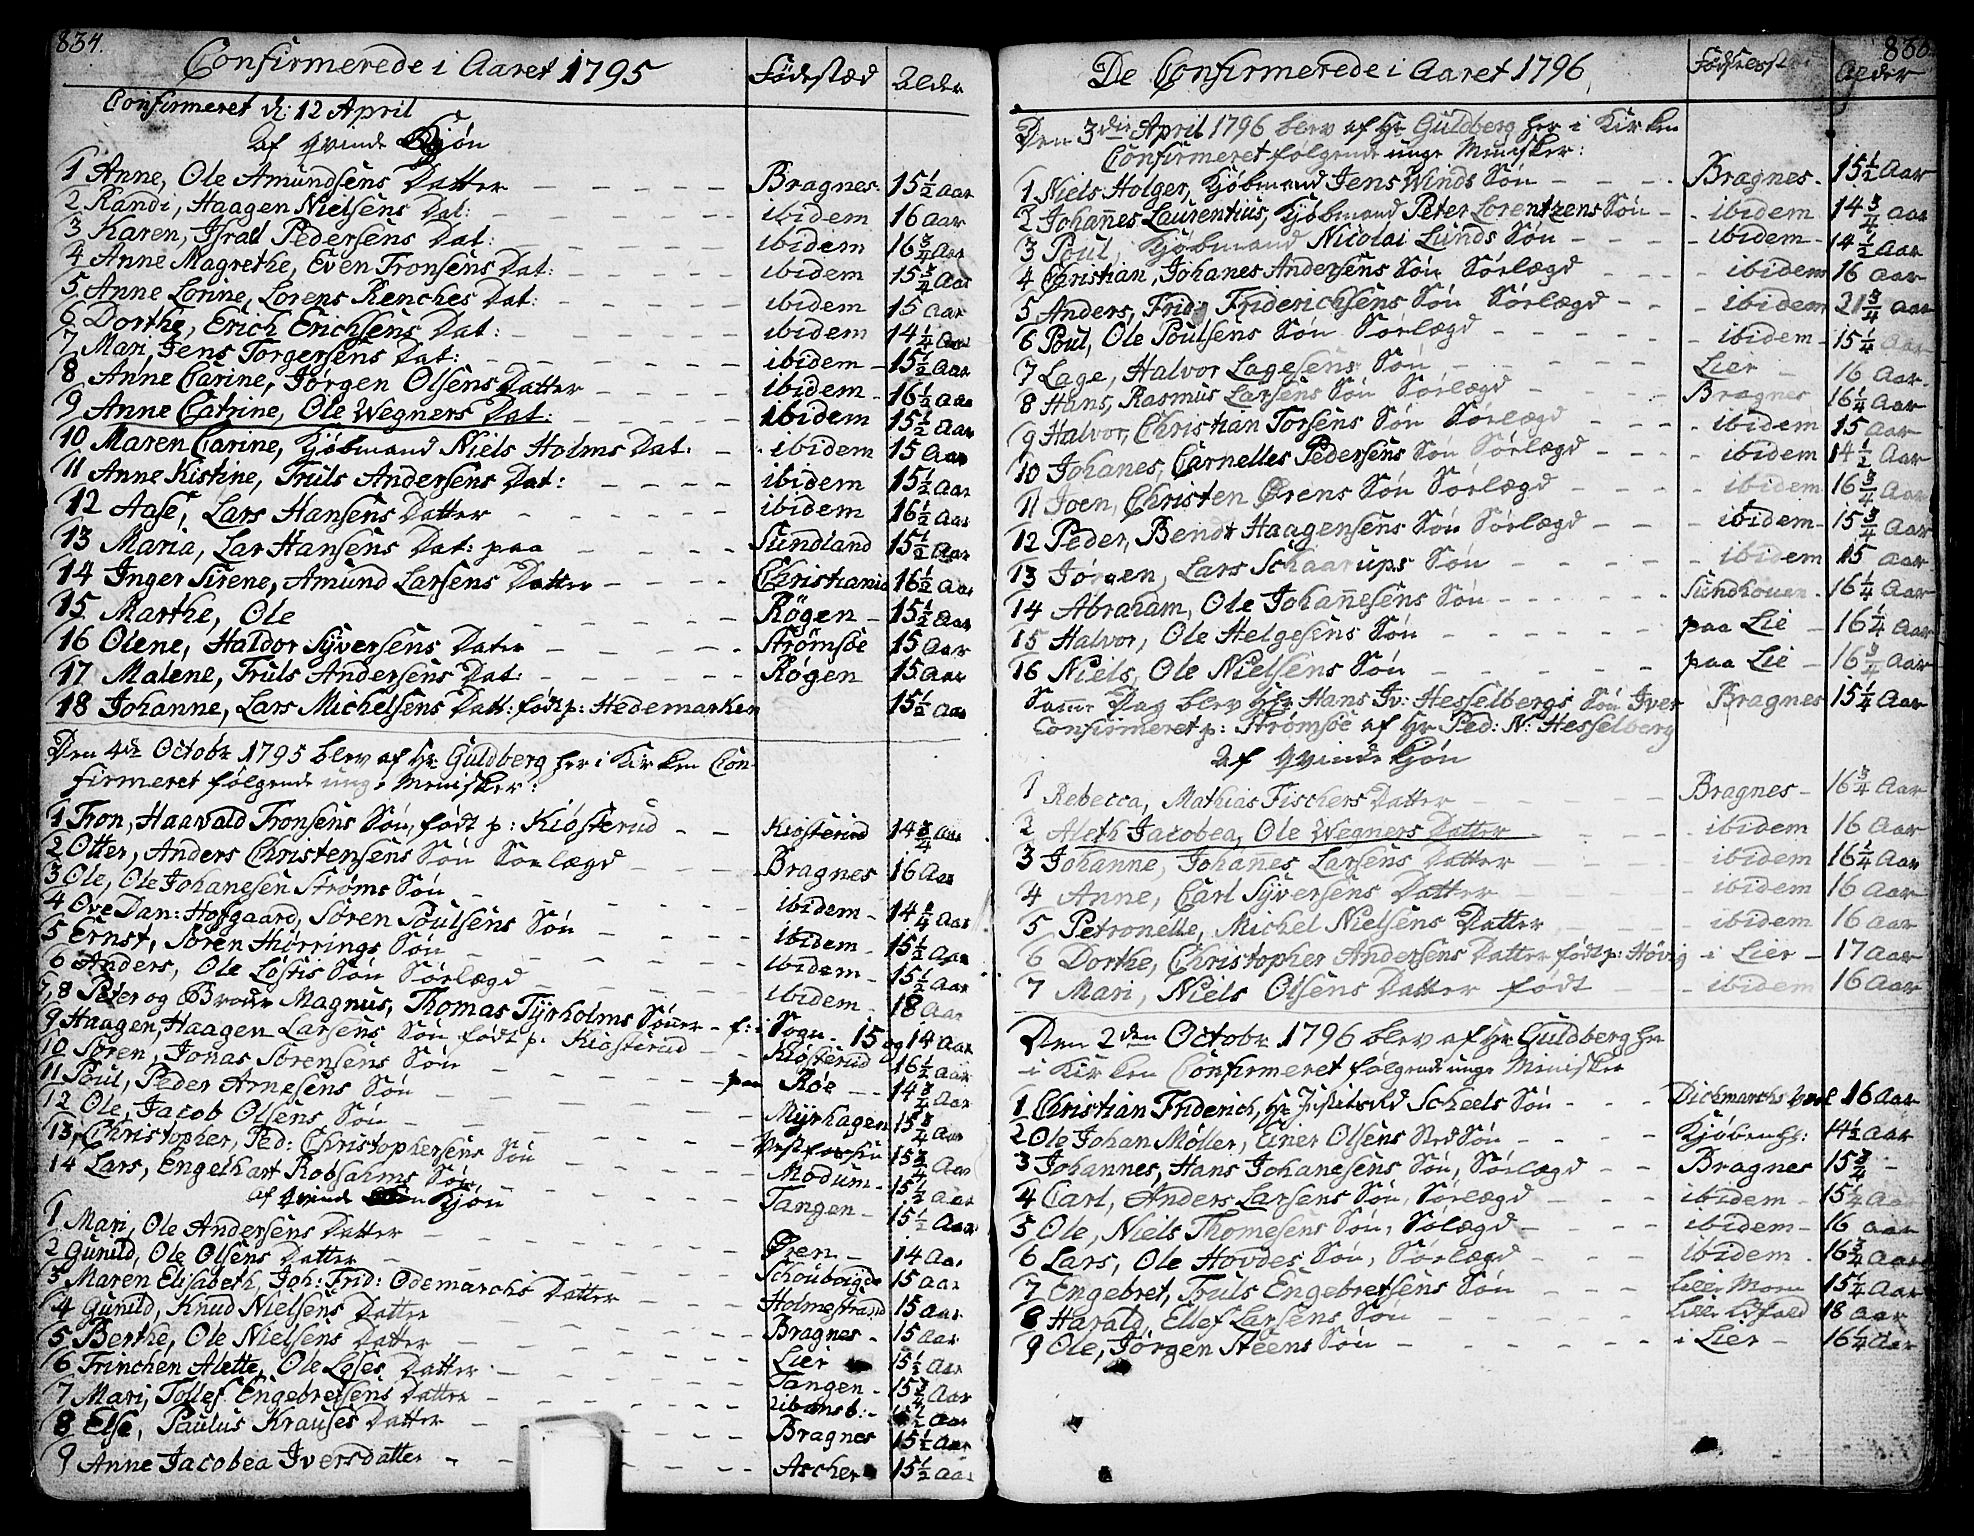 834.
Confirmerede i Aaret 1795 Födestæd Alder
Confirmeret d: 12 April
Af Qvinde Kjøn
1 Anne, Ole Amundsens Datter Bragnes. 15 1/2 Aar
2 Randi, Haagen Nielsens Dat: ibidem 16 Aar
3 Karen, Israel Pedersens Dat: ibidem 16 3/4 Aar
4 Anne Magrethe, Even Tronsens Dat: ibidem 15 3/4 Aar
5 Anne Lorine, Lorens Renches Dat: ibidem 15 Aar
6 Dorthe, Erich Erichsens Dat: ibidem 14 1/4 Aar
7 Mari, Jens Torgersens Dat: ibidem 15 1/2 Aar
8 Anne Carine, Jørgen Olsens Datter ibidem 16 1/2 Aar
9 Anne Catrine, Ole Wegners Dat: ibidem 15 1/2 Aar
10 Maren Carine, Kjöbmand Niels Holms Dat: ibidem 15 Aar
11 Anne Kistine, Truls Andersens Dat: ibidem 15 1/2 Aar
12 Aase, Lars Hansens Datter ibidem 16 1/2 Aar
13 Maria, Lar Hansens Dat: paa Sundland 15 1/2 Aar
14 Inger Sirene, Amund Larsens Datter Christiania 16 1/2 Aar
15 Marthe, Ole Røgen 15 1/2 Aar
16 Olene, Haldor Syversens Dater Strømsöe 15 Aar
17 Malene, Truls Andersens Dat: Røgen 15 Aar
18 Johanne, Lars Michelsens Datt: født p: Hedemarken 15 1/2 Aar
Den 4de Octobr 1795 blev af Hr Guldberg her i Kirken Con-
firmeret følgende unge Menisker:
1 Tron, Haavald Tronsens Søn, født p: Kiosterud Kiosterud 14 3/4 Aar
2 Otter, Anders Christensens Søn Sørlægd Bragnes 16 Aar
3 Ole, Ole Johanesen Strøms Søn ibidem 14 1/4 Aar
4 Ove Dan: Hofgaard, Søren Poulsens Søn ibidem 15 1/2 Aar
5 Ernst, Søren Hiørrings Søn ibidem 15 1/2 Aar
6 Anders, Ole Løstis Søn Sørlægd ibidem 18 Aar
7, 8 Peter og Broder Magnus, Thomas Tyrholms Sønner f: i Sogn 15 og 14 Aar
9 Haagen, Haagen Larsens Søn født p: Kiosterud Kiosterud 16 1/2 Aar
10 Søren, Jonas Sørensens Søn paa Roe 14 3/4 Aar
11 Poul, Peder Arnesens Søn Myrhagen 15 3/4 Aar
12 Ole, Jacob Olsens Søn Vestfossen 15 3/4 Aar
13 Christopher, Ped: Christophersens Søn Modum 15 1/2 Aar
14 Lars, Engelhart Robsahms Søn Tangen 15 1/2 Aar
af Qvinde Kjøn
1 Mari, Ole Andersens Datter Øren 14 Aar
2 Gunild, Ole Olsens Datter 15 Aar
3 Maren Elisabeth, Joh: Frid: Odemarchs Datter Holmestrand 15 Aar
4 Gunild, Knud Nielsens Datter Bragnes 15 Aar
5 Berthe, Ole Nielsens Datter Lier 15 1/2 Aar
6 Trinchen Alette, Ole Loses Datter Tangen 15 3/4 Aar
7 Mari, Tollef Engebretsens Datter 15 1/2 Aar
8 Else, Paulus Krauses Datter Bragnes 15 1/2 Aar
9 Anne Jacobea Iversdatter Ascher 15 1/2 Aar
De Confirmerede i Aaret 1796 Alder
Den 3die April 1796 blev af Hr Guldberg her i Kirken
Confirmeret følgende unge Menisker:
1 Niels Holger, Kjöbmand Jens Winds Søn Bragnes 15 1/2 Aar
2 Johannes Laurentius, Kjöbmand Peter Lorentzens Søn ibidem 14 3/4 Aar
3 Poul, Kjöbmand Nicolai Lunds Søn ibidem 14 1/2 Aar
4 Christian, Johanes Andersens Søn Sørlægd ibidem 16 Aar
5 Anders, Frid: Friderichsens Søn Sørlægd ibidem 21 3/4 Aar
6 Poul, Ole Poulsens Søn Sørlægd ibidem 15 1/4 Aar
7 Lage, Halvor Lagesens Søn Lier 16 Aar
8 Hans, Rasmus Larsens Søn Sørlægd Bragnes 16 1/4 Aar
9 Halvor, Christian Torsens Søn Sørlægd ibidem 15 Aar
10 Johanes, Carnelles Pedersens Søn Sørlægd ibidem 14 1/2 Aar
11 Joen, Christen Ørens Søn Sørlægd ibidem 16 3/4 Aar
12 Peder, Bendt Haagensens Søn Sørlægd ibidem 15 3/4 Aar
13 Jørgen, Lars Schaarups Søn ibidem 15 Aar
14 Abraham, Ole Johannesens Søn Sundhouen 16 1/4 Aar
15 Halvor, Ole Helgesens Søn paa Lie 16 1/4 Aar
16 Niels, Ole Nielsens Søn paa Lie 16 3/4 Aar
Samme Dag blev Hr Hans Iv: Hesselbergs Søn Iver Bragnes 15 1/4 Aar
Confirmeret p: Strømsöe af Hr Ped: N: Hesselberg
Af Qvinde Kjøn
1 Rebecca, Mathias Fischers Datter Bragnes 16 3/4 Aar
2 Aleth Jacobea, Ole Wegners Datter ibidem 16 Aar
3 Johanne, Johannes Larsens Datter ibidem 16 1/4 Aar
4 Anne, Carl Syversens Datter ibidem 16 Aar
5 Petronelle, Michel Nielsens Datter ibidem 16 Aar
6 Dorthe, Christopher Andersens Datter født p: Høvig i Lier 17 Aar
7 Mari, Niels Olsens Datter født ibidem 16 Aar
Den 2den Octobr 1796 blev af Hr Guldberg her
i Kirken Confirmeret følgende unge Menisker
1 Christian Friderich, Hr Scheels Søn 16 Aar
2 Ole Johan Møller, Einer Olsens Søn Kjøbenh: 14 1/2 Aar
3 Johannes, Hans Johanesens Søn, Sørlægd Bragnes 15 3/4
4 Carl, Anders Larsens Søn, Sørlægd ibidem 15 1/4 Aar
5 Ole, Niels Thomesens Søn, Sølægd ibidem 16 Aar
6 Lars, Ole Hovdes Søn, Sørlægd ibidem 16 3/4 Aar
7 Engebret, Truls Engebretsens Søn 15 1/4 Aar
8 Harald, Ellef Larsens Søn 18 Aar
9 Ole, Jørgen Steens Søn i Lier 16 1/4 Aar